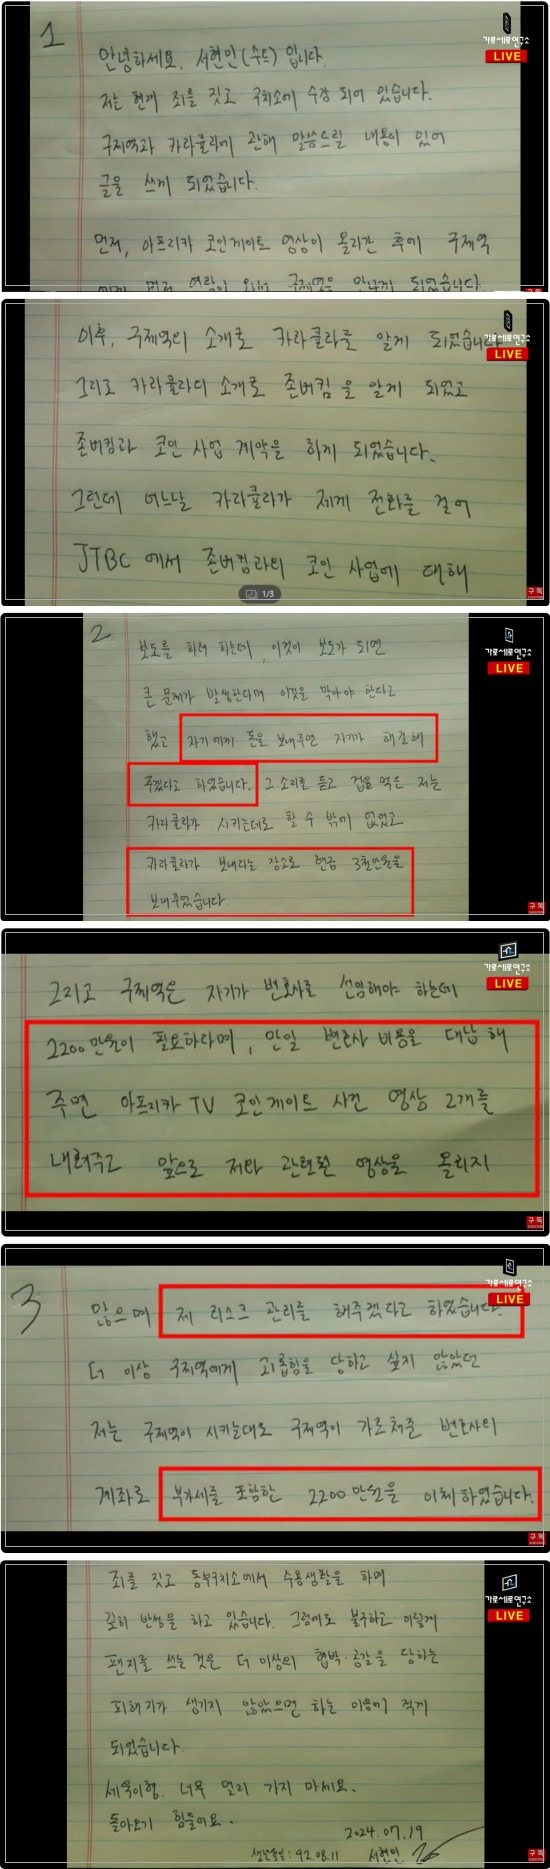 1
가로세로연구소
LIVE
안녕하세요. 서현민(수트) 입니다.
저는 현재 죄를 짓고 구치소에 수감 되어 있습니다.
구제역과 카라큘라에 관해 말씀드릴 내용이 있어
글을 쓰게 되었습니다.
먼저, 아프리카 코인게이트 영상이 올라간 후에 구제역
에게 먼저 연락이 와서 구제역을 만나게 되었습니다
구독
이후, 구제역의 소개로 카라큘라를 알게 되었습니다
가로세로연구소
LIVE
그리고 카라큘라의 소개로 존버킴을 알게 되었고
존버킴과 코인 사업 계약을 하게 되었습니다.
그런데 어느날 카라큘라가 제게 전화를 걸어
JTBC 에서 존버킴과의 코인 사업에 대해
1/3
구독
2
가로세로연구소
LIVE
보도를 하려 하는데, 이것이 보도가 되면
큰 문제가 발생한다며 이것을 막아야 한다고
했고 자기에게 돈을 보내주면 자기가 해결해
주겠다고 하였습니다. 그 소리를 듣고 겁을 먹은 저는
카라큘라가 시키는대로 할 수 밖에 없었고
카라큘라가 보내라는 장소로 현금 3천만원을
보내주었습니다.
구독
가로세로연구소
LIVE
그리고 구제역은 자기가 변호사를 선임해야 하는데
2200만원이 필요하다며, 만일 변호사 비용을 대납해
주면 아프리카 TV 코인게이트 사건 영상 2개를
내려주고 앞으로 저와 관련된 영상을 올리지
구독
3
가로세로연구소
LIVE
않으며 제 리스크 관리를 해주겠다고 하였습니다.
더 이상 구제역에게 괴롭힘을 당하고 싶지 않았던
저는 구제역이 시키는대로 구제역이 가르쳐준 변호사의
계좌로 부가세를 포함한 2200만원을 이체하였습니다.
구독
가로세로연구소
LIVE
죄를 짓고 동부구치소에서 수용생활을 하며
깊이 반성을 하고 있습니다. 그럼에도 불구하고 이렇게
편지를 쓰는 것은 더 이상의 협박·공갈을 당하는
피해자가 생기지 않았으면 하는 마음에 적게
되었습니다.
세욱이형. 너무 멀리 가지 마세요.
돌아오기 힘들어요.
2024.07.19
생년월일: 92.08.11 서현민
구독